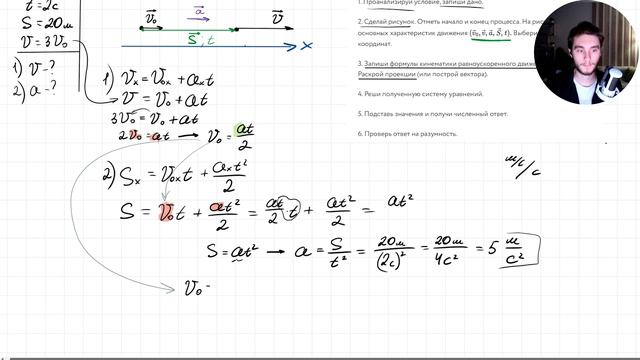 t = 2c
S = 20м
V = 3V₀
1) V - ?
2) a - ?
V⃗₀ a⃗ V⃗
S⃗, t
x
1) Vₓ = V₀ₓ + aₓt
V = V₀ + at
3V₀ = V₀ + at
2V₀ = at → V₀ = at/2
2) Sₓ = V₀ₓt + aₓt²/2
S = V₀t + at²/2 = at/2 t + at²/2 = at²
S = at² → a = S/t² = 20м/(2c)² = 20м/4c² = 5 м/c²
V₀ -
1. Проанализируй условие, запиши дано.
2. Сделай рисунок. Отметь начало и конец процесса. На рис
основных характеристик движения (v⃗₀, v⃗, a⃗, S⃗, t). Выбери
координат.
3. Запиши формулы кинематики равноускоренного движе
Раскрой проекции (или построй вектора).
4. Реши полученную систему уравнений.
5. Подставь значения и получи численный ответ.
6. Проверь ответ на разумность.
м/c/c